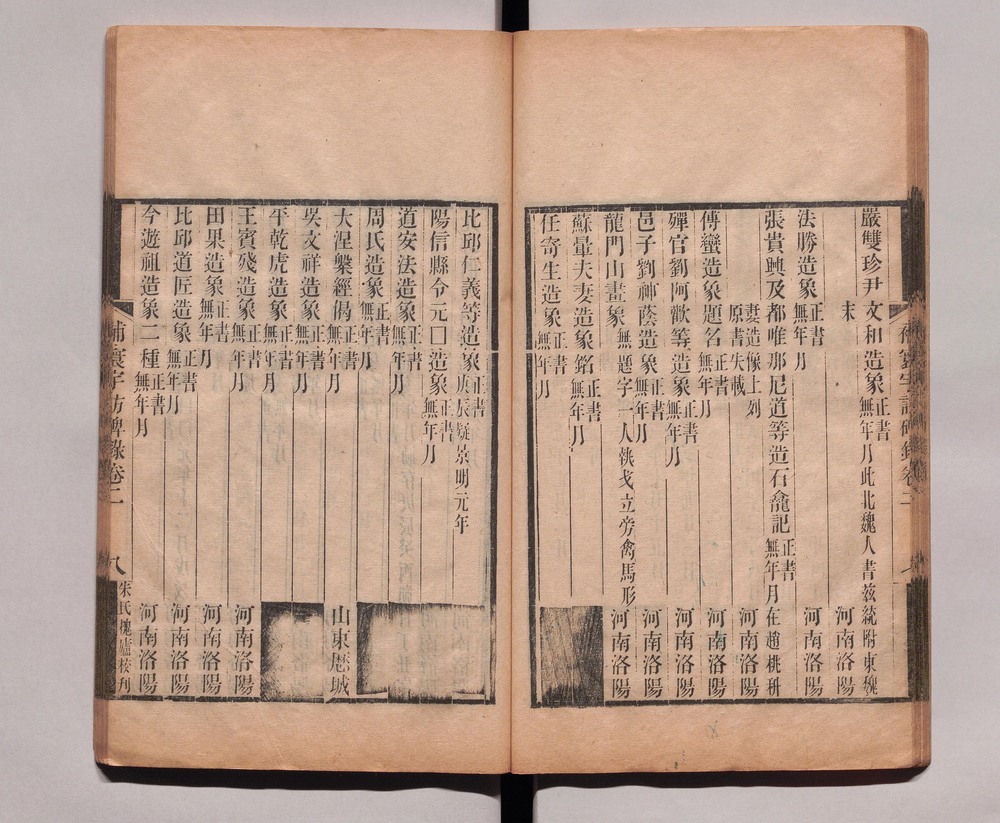 嚴雙珍尹文和造象正書無年月此北魏人書茲統附東魏
末 河南洛陽
法勝造象正書無年月 河南洛陽
張貴興及都唯那尼道等造石龕記正書無年月在趙桃科
妻造像上列原書失載 河南洛陽
傅蠻造象題名正書無年月 河南洛陽
殫官劉阿歡等造象正書無年月 河南洛陽
邑子劉神蔭造象正書無年月 河南洛陽
龍門山畫象無題字一人執戈立旁禽馬形 河南洛陽
蘇暈夫妻造象銘正書無年月
任寄生造象正書無年月
補寰宇訪碑錄卷二
比邱仁義等造象正書庚辰疑景明元年
陽信縣令元囗造象正書無年月
道安法造象正書無年月
周氏造象正書無年月
大涅槃經偈正書無年月 山東歷城
吳文祥造象正書無年月
平乾虎造象正書無年月
王賓殘造象正書無年月 河南洛陽
田果造象正書無年月 河南洛陽
比邱道匠造象正書無年月 河南洛陽
今遊祖造象二種正書無年月 河南洛陽
補寰宇訪碑錄卷二 八 朱氏槐廬校刊